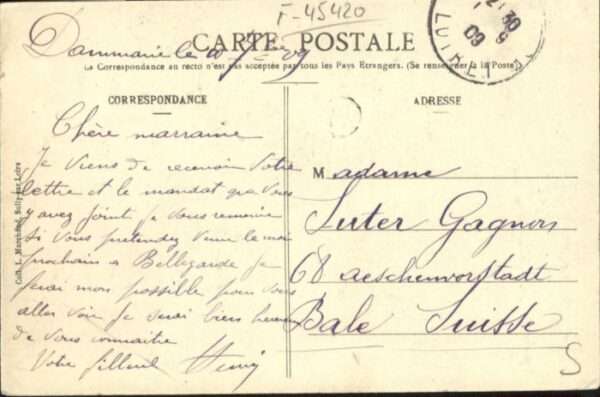 F-45420
Dammarie le 10 7bre 09
CARTE POSTALE
La Correspondance au recto n'est pas acceptée par tous les Pays Etrangers. (Se renseigner à la Poste)
CORRESPONDANCE
ADRESSE
Chère marraine
Je viens de recevoir votre
lettre et le mandat que vous
y avez joint je vous remercie
Si vous pretendez venir le moi
prochain a Bellegarde je
ferai mon possible pour vous
aller voir je serai bien heureux
de vous connaitre
Votre filleul Henri
Madame
Suter Gagnon
68 aeschenvorstadt
Bale Suisse
Coll. L. Marchand, Sully-sur-Loire
S